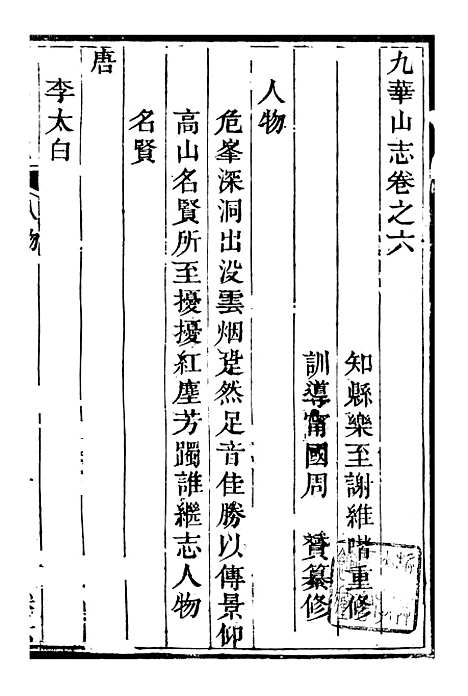 九華山志卷之六
知縣樂至謝維喈重修
訓導甯國周　贇纂修
人物
危峯深洞出没雲烟跫然足音佳勝以傳景仰
高山名賢所至擾擾紅塵芳躅誰繼志人物
名賢
唐
李太白
人物
卷六